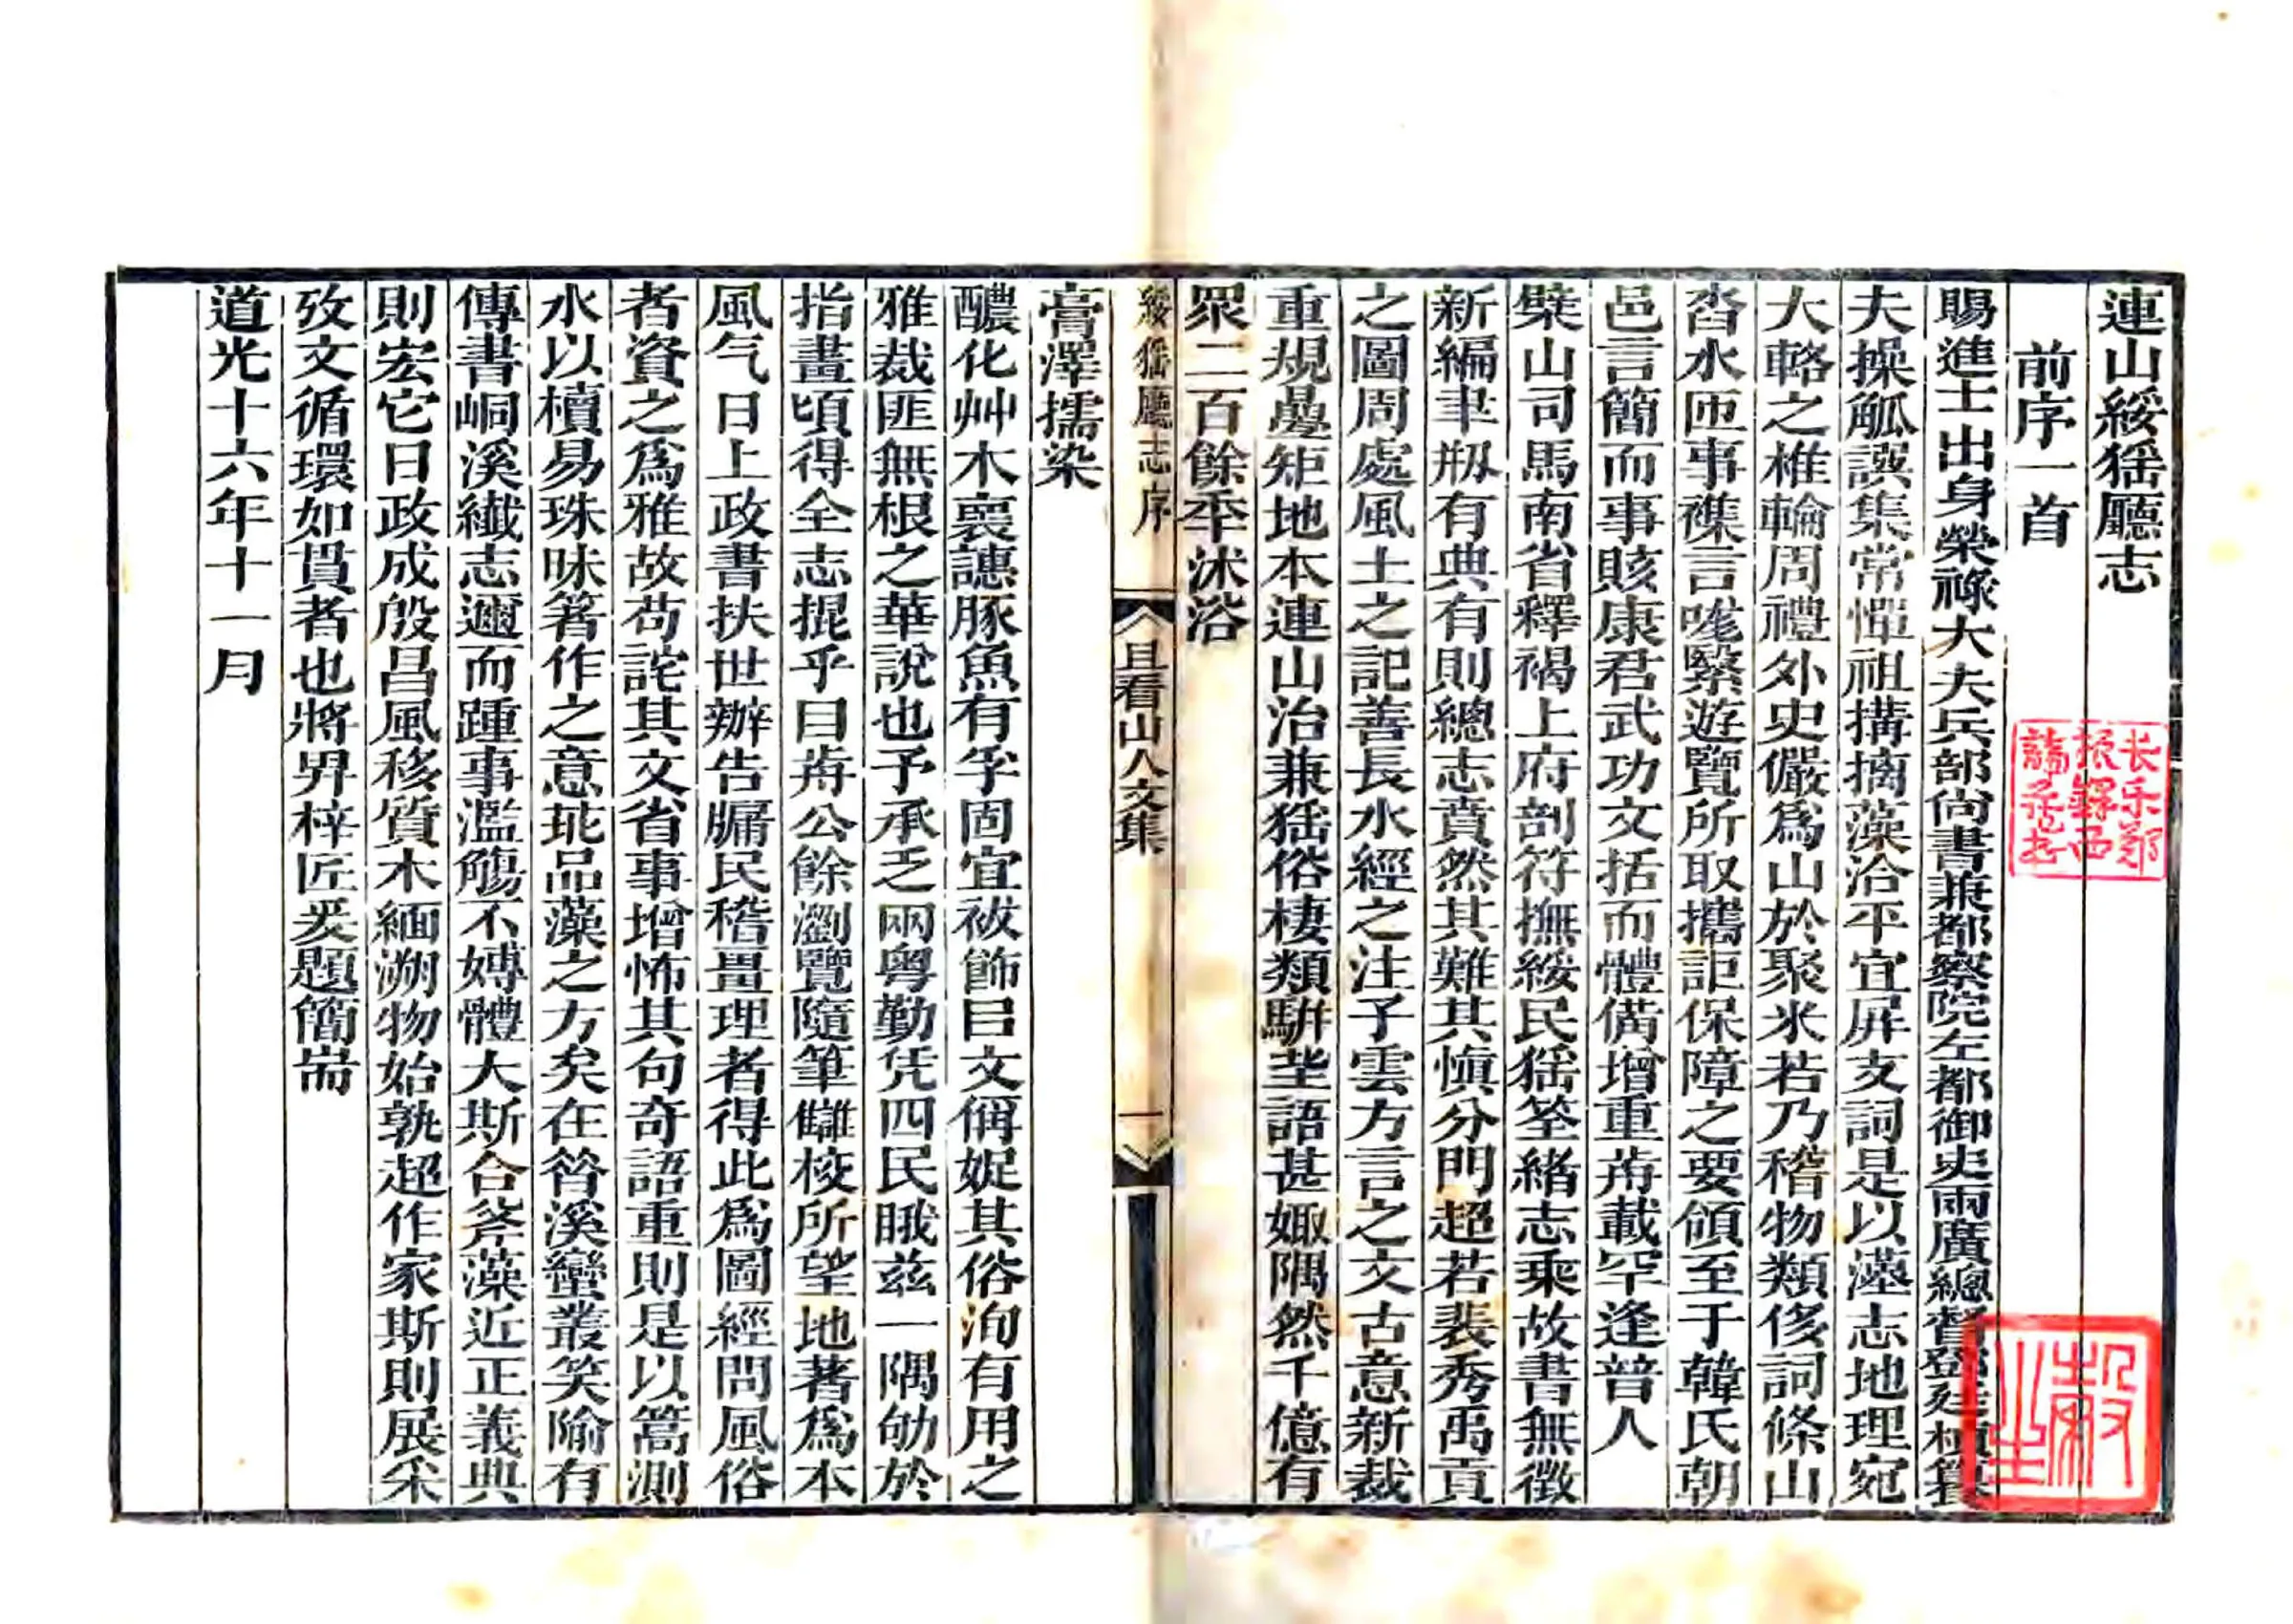 連山綏猺廳志
前序一首
賜進士出身榮祿大夫兵部尚書兼都察院左都御史兩廣總督鄧廷楨篹
夫操觚譔集常憚祖搆摛藻洽平宜屏支詞是以薀志地理宛
大輅之椎輪周禮外史儼爲山於聚米若乃稽物類侈詞條山
沓水匝事襍言嘥繄遊覽所取攜詎保障之要領至于韓氏朝
邑言簡而事賅康君武功文括而體僃增重歬載罕逢音人
檗山司馬南省釋褐上府剖符撫綏民猺筌緒志乘故書無徵
新編聿刱有典有則總志賁然其難其慎分門超若裴秀禹貢
之圖周處風土之記善長水經之注子雲方言之文古意新裁
重規曡矩地本連山治兼猺俗棲類騈坒語甚娵隅然千億有
眾二百餘秊沐浴
膏澤擩染
醲化艸木裛譓豚魚有孚固宜祓飾㠯文偁娖其俗洵有用之
雅裁匪無根之華說也予承乏兩粤勤凭四民睋茲一隅劬於
指畫頃得全志掍乎曰歬公餘瀏覽隨筆讎校所望地著爲本
風气日上政書扶世辦告牖民稽畺理者得此爲圖經問風俗
者資之爲雅故苟詫其文省事增怖其句奇語重則是以篙測
水以櫝易珠昧箸作之意玼品藻之方矣在昝溪蠻叢笑隃有
傳書峒溪纖志邇而踵事濫觴不嫥體大斯合斧藻近正義典
則宏它日政成殷昌風移質木緬溯物始孰超作家斯則展采
攷文循環如貫者也將畀梓匠爰題簡耑
道光十六年十一月
綏猺廳志序
且看山人文集
一
长乐郑
振铎西
諦藏书